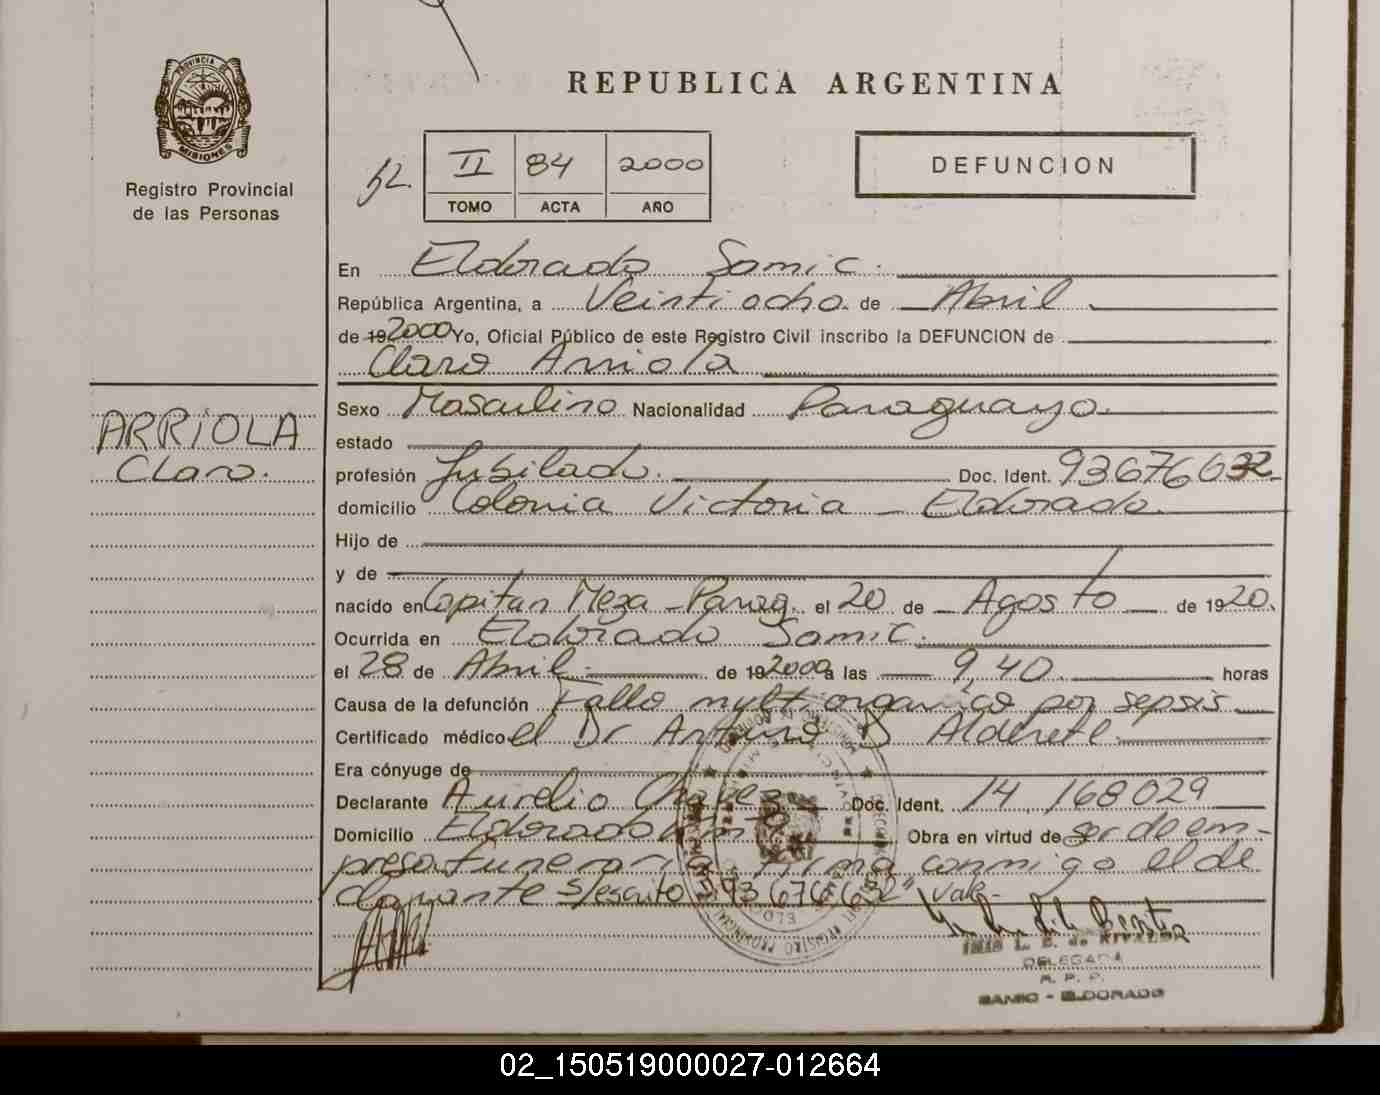 PROVINCIA DE
MISIONES
Registro Provincial
de las Personas
REPUBLICA ARGENTINA
II 84 2000
TOMO ACTA AÑO
DEFUNCION
En Eldorado Samic.
República Argentina, a Veintiocho de Abril
de 192000 Yo, Oficial Público de este Registro Civil inscribo la DEFUNCION de
Claro Arriola
ARRIOLA
Claro.
Sexo Masculino Nacionalidad Paraguayo.
estado
profesión Jubilado. Doc. Ident. 93676632
domicilio Colonia Victoria - Eldorado
Hijo de
y de
nacido en Capitan Meza - Parag. el 20 de Agosto de 1920.
Ocurrida en Eldorado Samic.
el 28 de Abril de 192000 a las 9,40 horas
Causa de la defunción Fallo multiorganico por sepsis
Certificado médico el Dr Arturo D Alderete
Era cónyuge de
Declarante Aurelio Chavez Doc. Ident. 14.168029
Domicilio Eldorado Obra en virtud de ser de em-
presa funeraria firma conmigo el de
clarante s/escrito "93676632" Vale-
INES L. B. de RIVALDI
DELEGADA
R. P. P.
SAMIC - ELDORADO
02_150519000027-012664